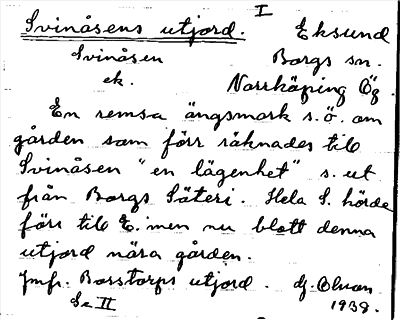 I
Svinåsens utjord. Eksund
Svinåsen Borgs sn.
ek. Norrköping Ög.
En remsa ängsmark s.ö. om
gården som förr räknades till
Svinåsen "en lägenhet" s. ut
från Borgs Säteri. Hela S. hörde
förr till E. men nu blott denna
utjord nära gården.
Jmfr. Borstorps utjord. Hj. Olson
Se II 1938.